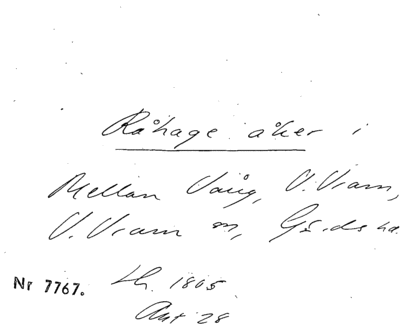 Råhage åker i
Mellan Vång, V. Vram,
V. Vram sn, Gärds hd.
Nr 7767. Lh. 1805
Akt 28